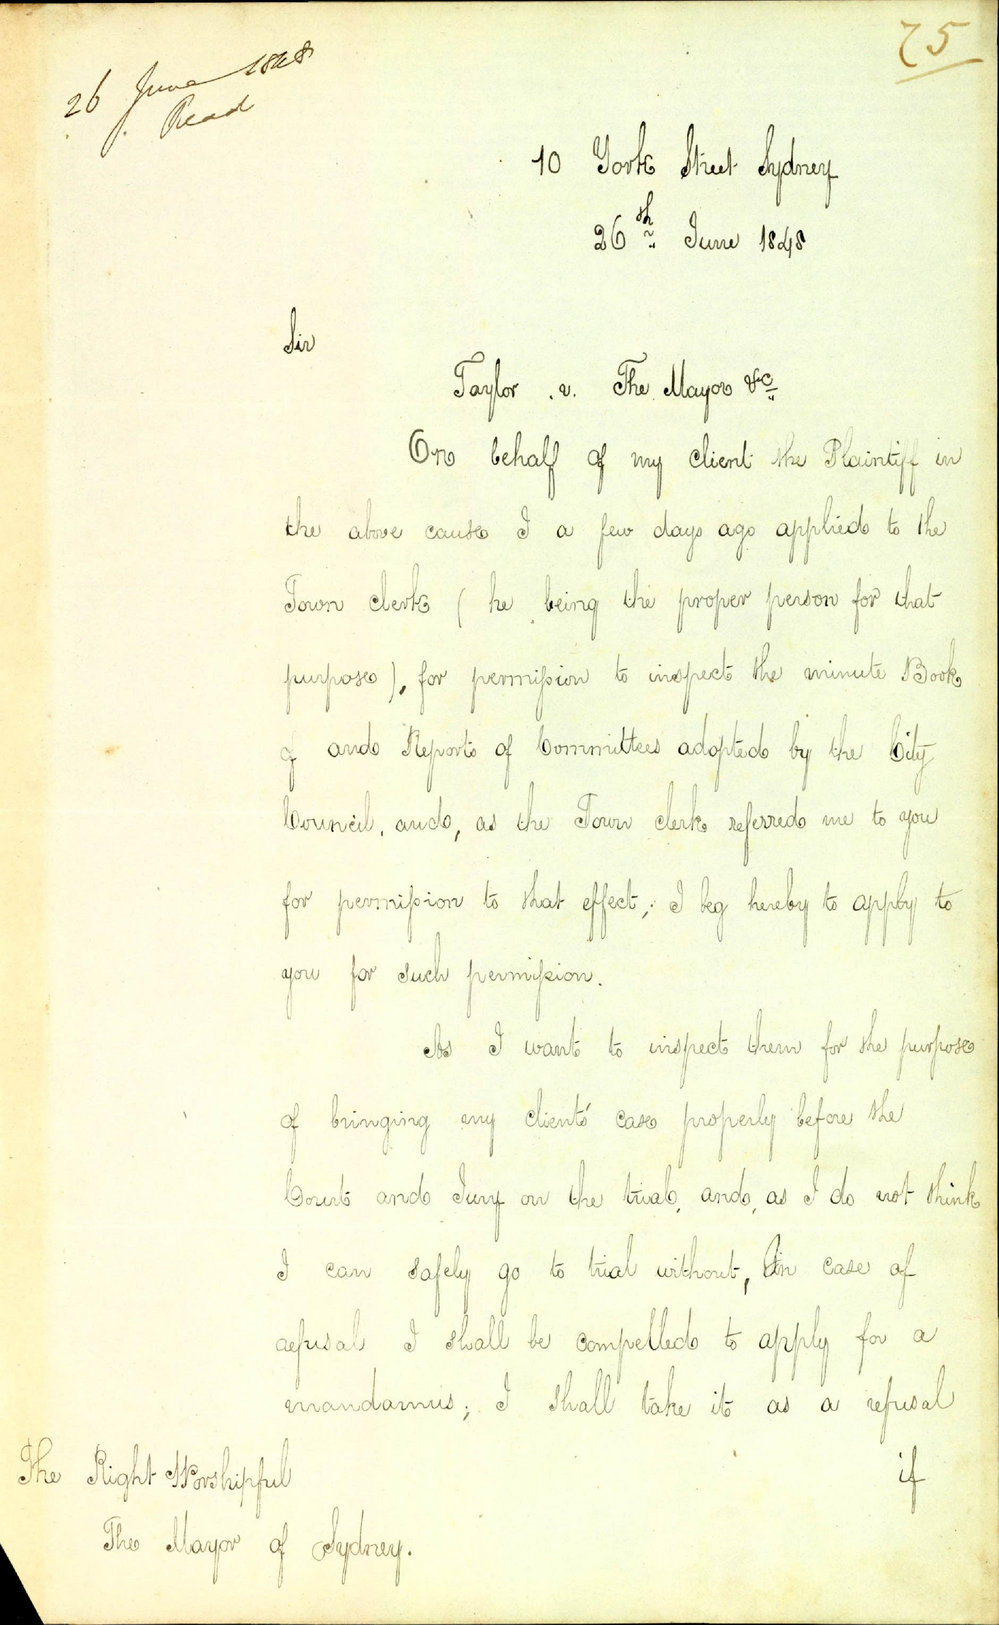 75
26 June 1848
Read
10 York Street Sydney
26th June 1848
Sir
Taylor . v. The Mayor &c
On behalf of my client the Plaintiff in
the above cause I a few days ago applied to the
Town clerk ( he being the proper person for that
purpose ), for permission to inspect the minute Book
of and Reports of Committees adopted by the City
Council, and, as the Town clerk referred me to you
for permission to that effect, I beg hereby to apply to
you for such permission.
As I want to inspect them for the purpose
of bringing my clients' case properly before the
Court and Jury on the trial, and, as I do not think
I can safely go to trial without, In case of
refusal I shall be compelled to apply for a
mandamus; I shall take it as a refusal
if
The Right Worshipful
The Mayor of Sydney.